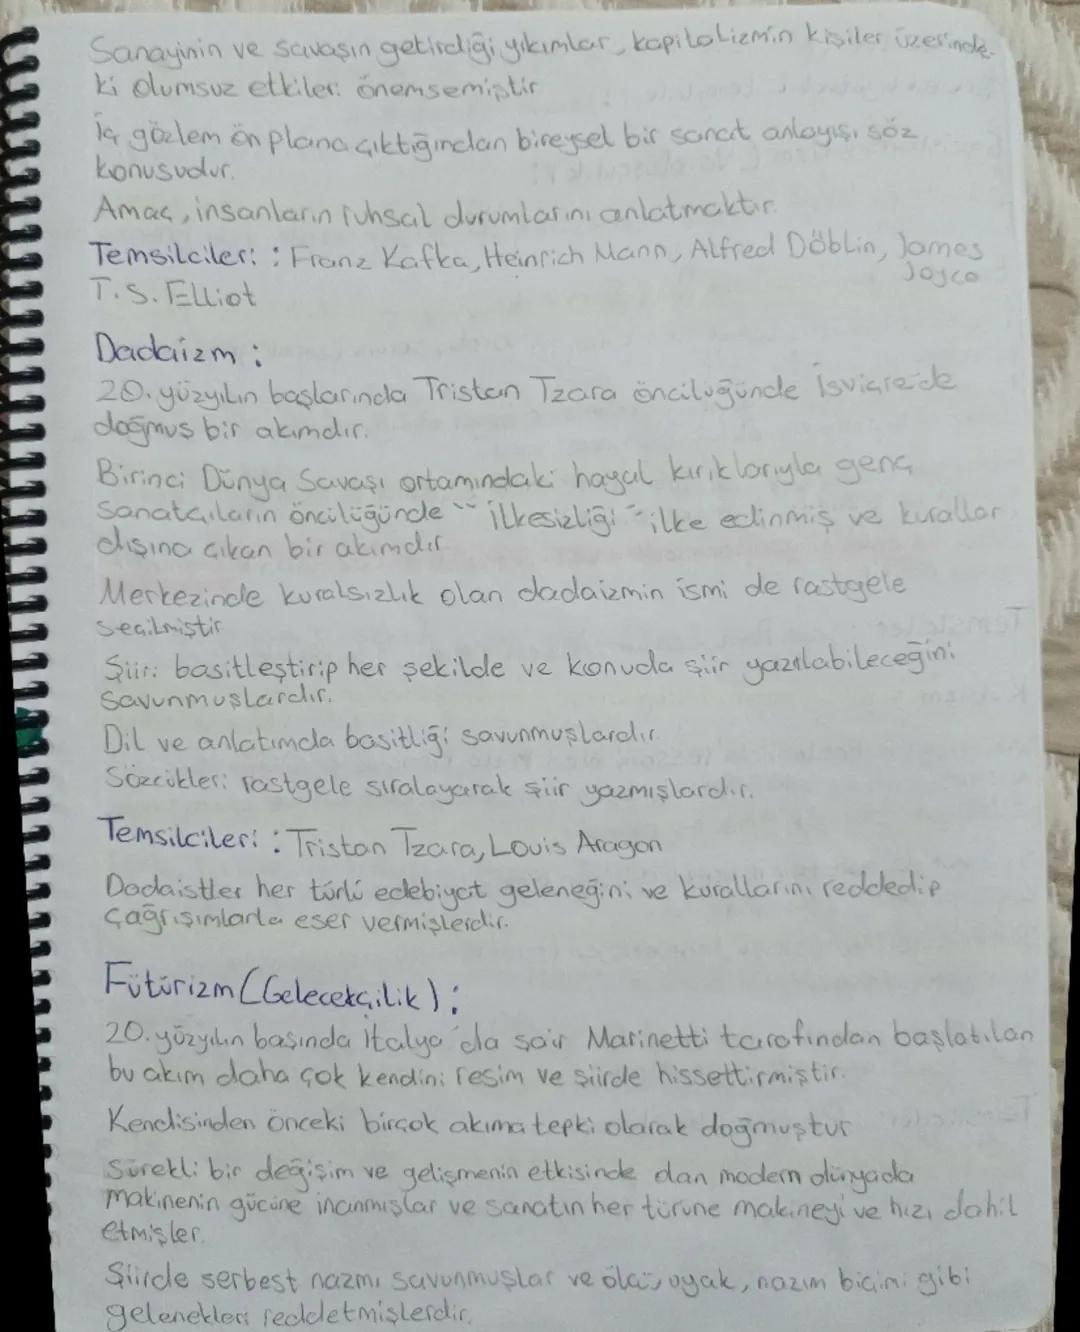 Sanayinin ve savaşın getirdiği yıkımlar, kapitalizmin kişiler üzerinde-
ki olumsuz etkileri önemsemiştir
İç gözlem ön plana çıktığından bireysel bir sanat anlayışı söz
konusudur.
Amaç, insanların ruhsal durumlarını anlatmaktır.
Temsilcileri : Franz Kafka, Heinrich Mann, Alfred Döblin, James
Joyce
T.S. Elliot
Dadaizm :
20. yüzyılın başlarında Tristan Tzara öncülüğünde İsviçre'de
doğmuş bir akımdır.
Birinci Dünya Savaşı ortamındaki hayal kırıklarıyla genç
Sanatçıların öncülüğünde " ilkesizliği " ilke edinmiş ve kurallar
dışına çıkan bir akımdır
Merkezinde kuralsızlık olan dadaizmin ismi de rastgele
seçilmiştir
Şiiri basitleştirip her şekilde ve konuda şiir yazılabileceğini
savunmuşlardır.
Dil ve anlatımda basitliği savunmuşlardır.
Sözcükleri rastgele sıralayarak şiir yazmışlardır.
Temsilcileri : Tristan Tzara, Louis Aragon
Dadaistler her türlü edebiyat geleneğini ve kurallarını reddedip
çağrışımlarla eser vermişlerdir.
Fütürizm (Gelecekçilik) :
20. yüzyılın başında İtalya'da şair Marinetti tarafından başlatılan
bu akım daha çok kendini resim ve şiirde hissettirmiştir.
Kendisinden önceki birçok akıma tepki olarak doğmuştur
Sürekli bir değişim ve gelişmenin etkisinde olan modern dünyada
makinenin gücüne inanmışlar ve sanatın her türüne makineyi ve hızı dahil
etmişler.
Şiirde serbest nazmı savunmuşlar ve ölçü, uyak, nazım biçimi gibi
gelenekleri reddetmişlerdir.